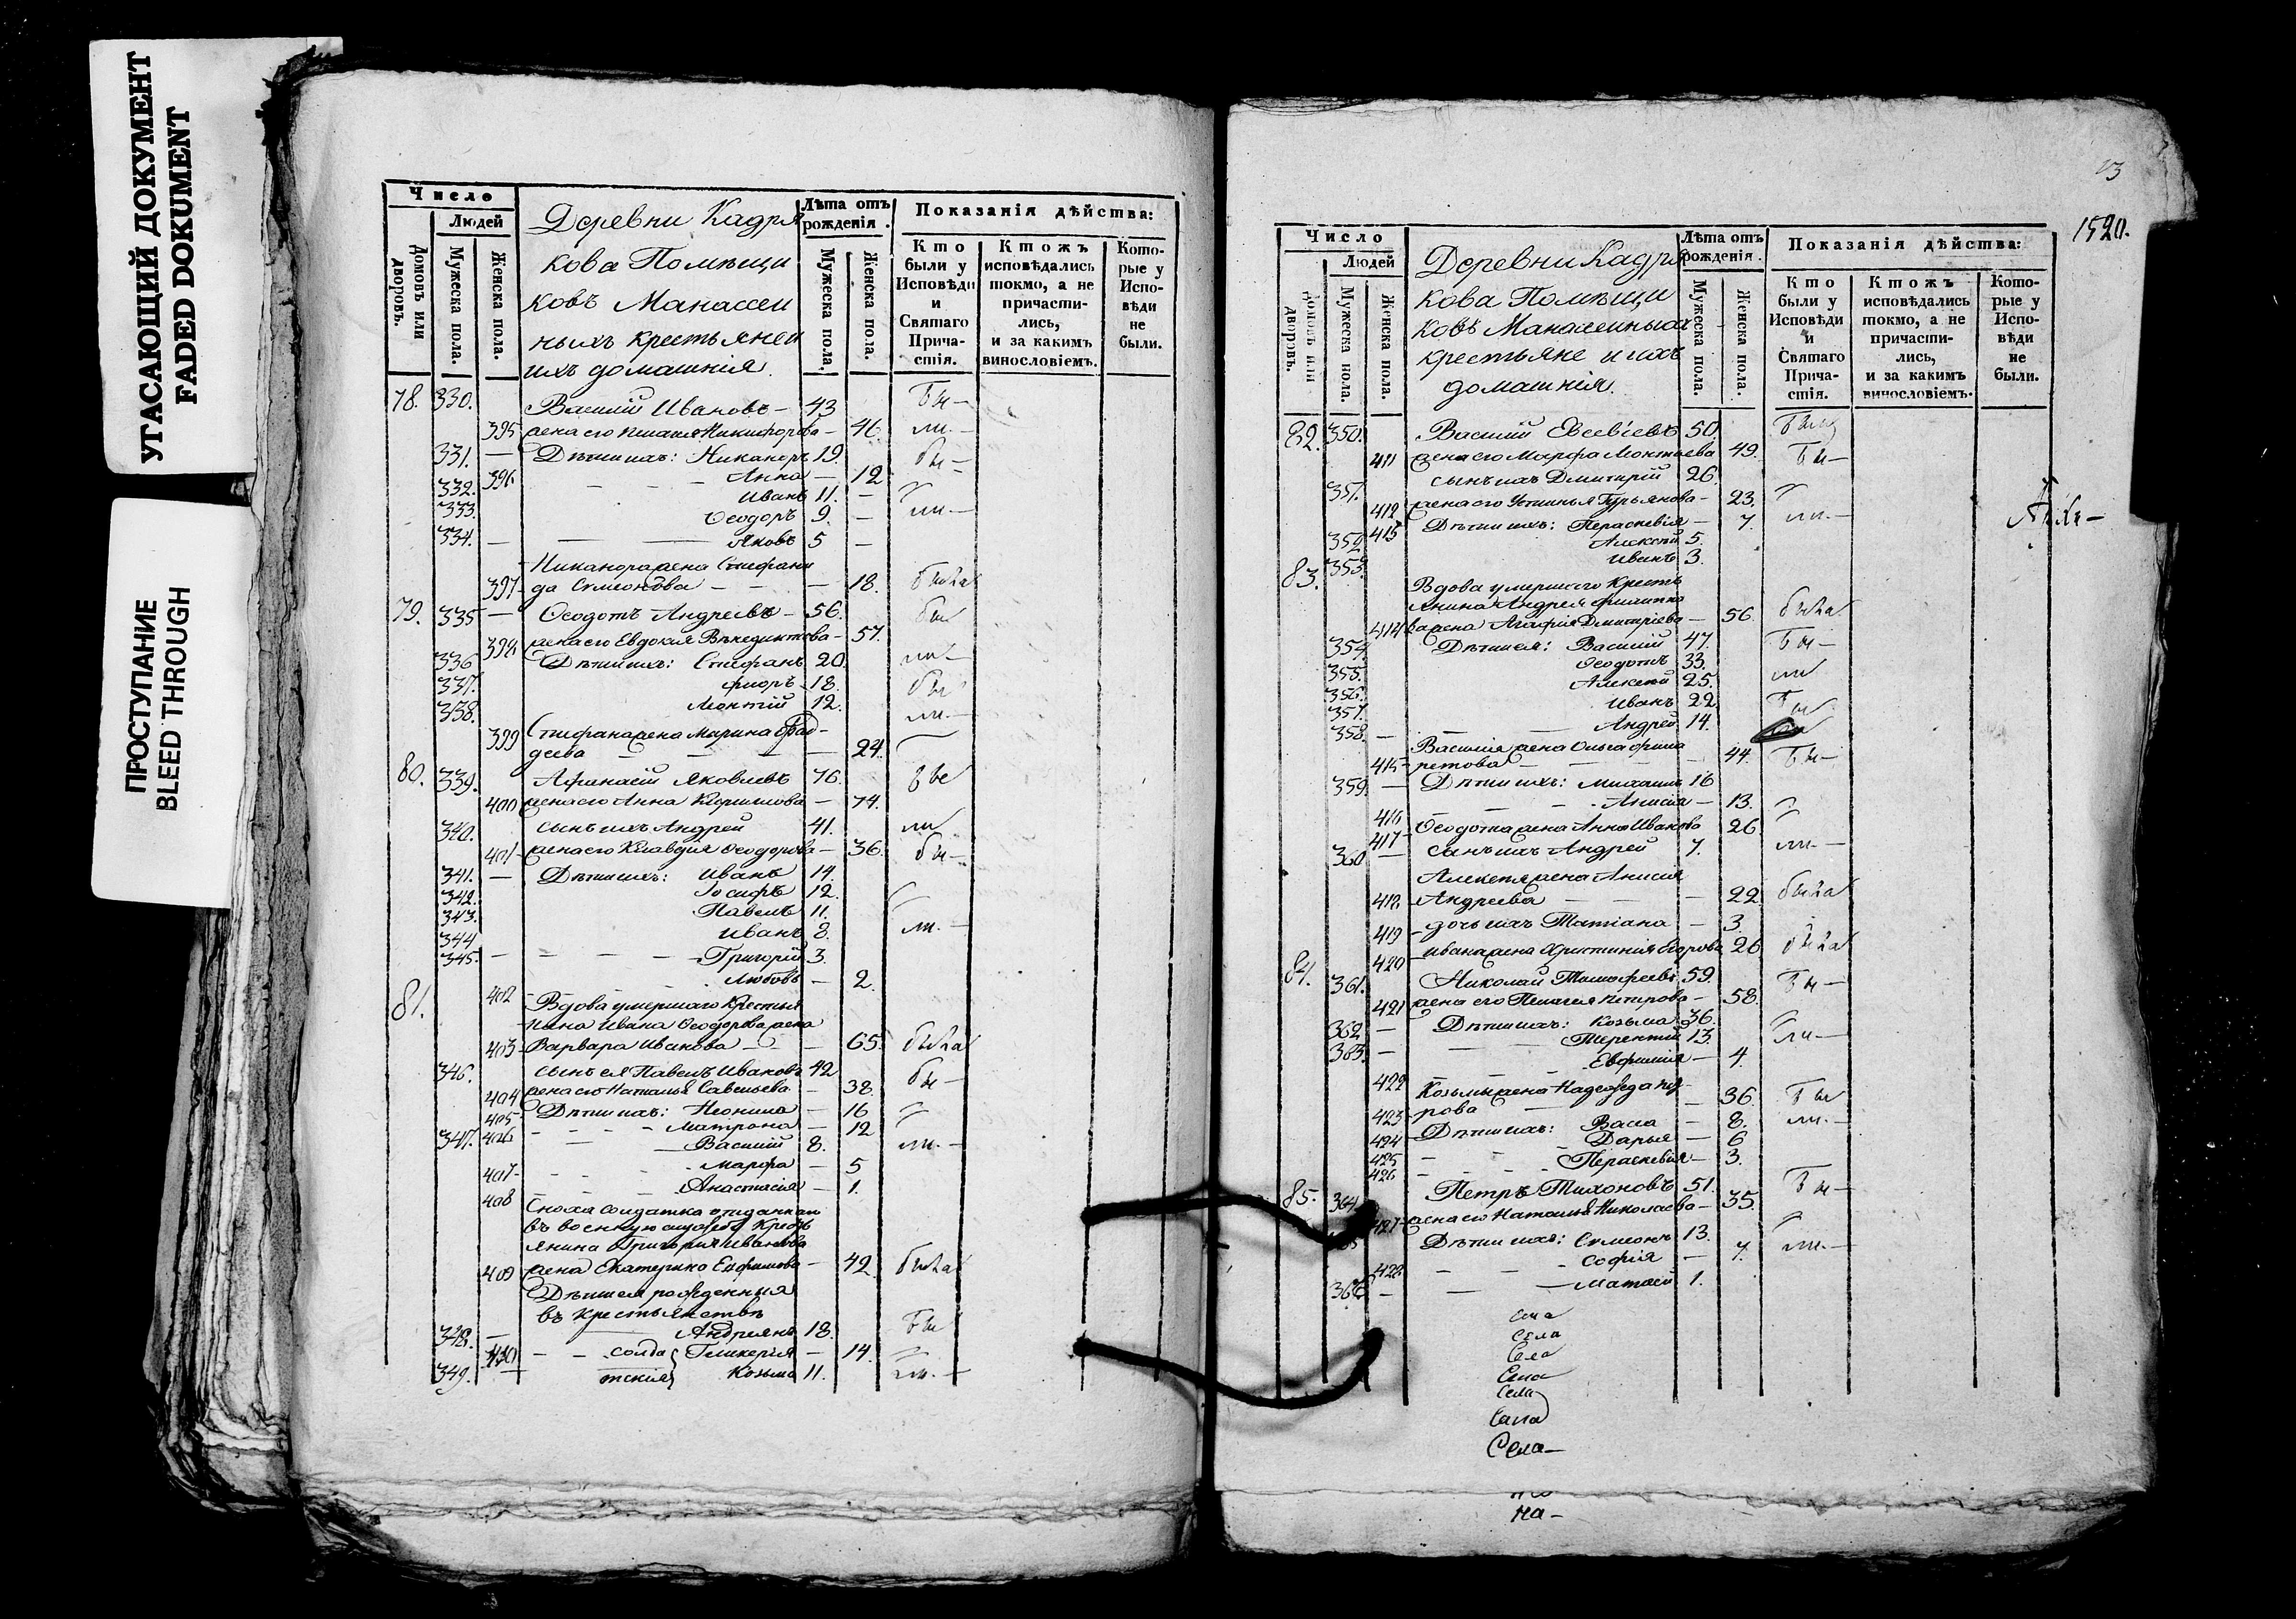 УГАСАЮЩИЙ ДОКУМЕНТ
FADED DOKUMENT
ПРОСТУПАНИЕ
BLEED THROUGH
Число
Людей
Домовъ или дворовъ.
Мужеска пола.
Женска пола.
Деревни Кадря
кова Помѣщи
ковъ Манассеи
ныхъ крестьяне и
ихъ домашнія.
Лѣта отъ рожденія.
Мужеска пола.
Женска пола.
Показанія дѣйства:
Кто были у Исповѣди и Святаго Прича-стія.
Ктожъ исповѣдались токмо, а не причасти-лись, и за какимъ винословіемъ.
Кото-рые у Испо-вѣди не были.
78. 330. Василій Ивановъ – 43 бы –
395 жена его Пелагея Никифорова – 46. ли. –
331. – Дѣти ихъ: Никаноръ 19. бы –
396. Анна – 12
332. Иванъ 11. –
333. Ѳеодоръ 9. – ли. –
334. – Яковъ 5 –
Никанора жена Стефани
397 да Симеонова – – 18. была
79. 335 – Ѳеодотъ Андреевъ – 56. бы
398 жена его Евдокія Венедиктова – 57.
336 Дѣти ихъ: Стефанъ 20. ли –
337. Флоръ 18. бы
338. Леонтій 12. ли. –
399 Стефана жена Марина Фад-
деева – – – 24.
80. 339. Афанасій Яковлевъ 76. бы
400 жена его Анна Кирилова – 74.
340. сынъ ихъ Андрей 41. ли
401 жена его Клавдія Ѳеодорова – 36. бы –
341. – Дѣти ихъ: Иванъ 14.
342. Іосифъ 12.
343. Павелъ 11.
344 Иванъ 8. ли. –
345. – Григорій 3.
402 Любовь – 2.
81. Вдова умершаго крестья
нина Ивана Ѳеодорова жена
403 Варвара Иванова – – 65. была
346. сынъ ея Павелъ Ивановъ 42 бы –
404 жена его Наталья Савельева – 38.
405 Дѣти ихъ: Неонила – 16
406 Матрона – 12
347. Василій 8. ли. –
407 Марфа – 5
408 Анастасія – 1.
Сноха солдатка отданнаго
въ военную службу крест
янина Григорія Иванова
409 жена Екатерина Ефимова – 42. была
Дѣти ея рожденныя
въ крестьянствѣ
348. – Андреянъ 18. бы
410 – – солда Гликерія – 14.
349. – тскія Козьма 11. ли. –
23
1520.
Число
Людей
Домовъ или дворовъ.
Мужеска пола.
Женска пола.
Деревни Кадря
кова Помѣщи
ковъ Манасеиныхъ
крестьяне и ихъ
домашнія.
Лѣта отъ рожденія.
Мужеска пола.
Женска пола.
Показанія дѣйства:
Кто были у Исповѣди и Святаго Прича-стія.
Ктожъ исповѣдались токмо, а не причасти-лись, и за какимъ винословіемъ.
Кото-рые у Испо-вѣди не были.
82. 350. Василій Евсевіевъ 50.
411 жена его Марфа Леонтьева 49. бы –
351. сынъ ихъ Дмитрій 26.
412 жена его Устинья Гурьянова – 23.
413 Дѣти ихъ: Параскевія – 7. ли. –
352 Алексѣй 5.
353. Иванъ 3.
83. Вдова умершаго крестъ
янина Андрея Филиппо
414 ва жена Агафія Дмитріева – 56. была
354. Дѣти ея: Василій 47. бы –
355. Ѳеодотъ 33.
356. Алексѣй 25. ли
357. Иванъ 22 бы
358. – Андрей 14.
Василія жена Ольга
415 – 44. бы –
359. – Дѣти ихъ: Михаилъ 16
416 Анисія – 13.
417 Ѳеодота жена Анна Иванова 26
360 – сынъ ихъ Андрей 7. ли. –
Алексѣя жена Анисія
418. Андреева – – 22. была
419 дочь ихъ Татіана – 3.
420 Ивана жена Христинія Егорова 26. была
84. 361. Николай Тимофеевъ 59. бы –
421 жена его Пелагея Петрова – 58.
362 – Дѣти ихъ: Козьма 36.
363. – Терентій 13. ли –
422 Евфимія – 4.
Козьмы жена Надежда Пет-
423 рова – 36. бы
424 Дѣти ихъ: Васса – 8. ли. –
425 Дарья – 6
426 Параскевія – 3.
85. 364 Петръ Тихоновъ 51. бы –
427 жена его Наталья Николаева – 35.
Дѣти ихъ: Симеонъ 13. ли. –
428 Софія – 7.
366 – Матвей 1.
Села
Села
Села
Села
Села
Села
Села –
на –